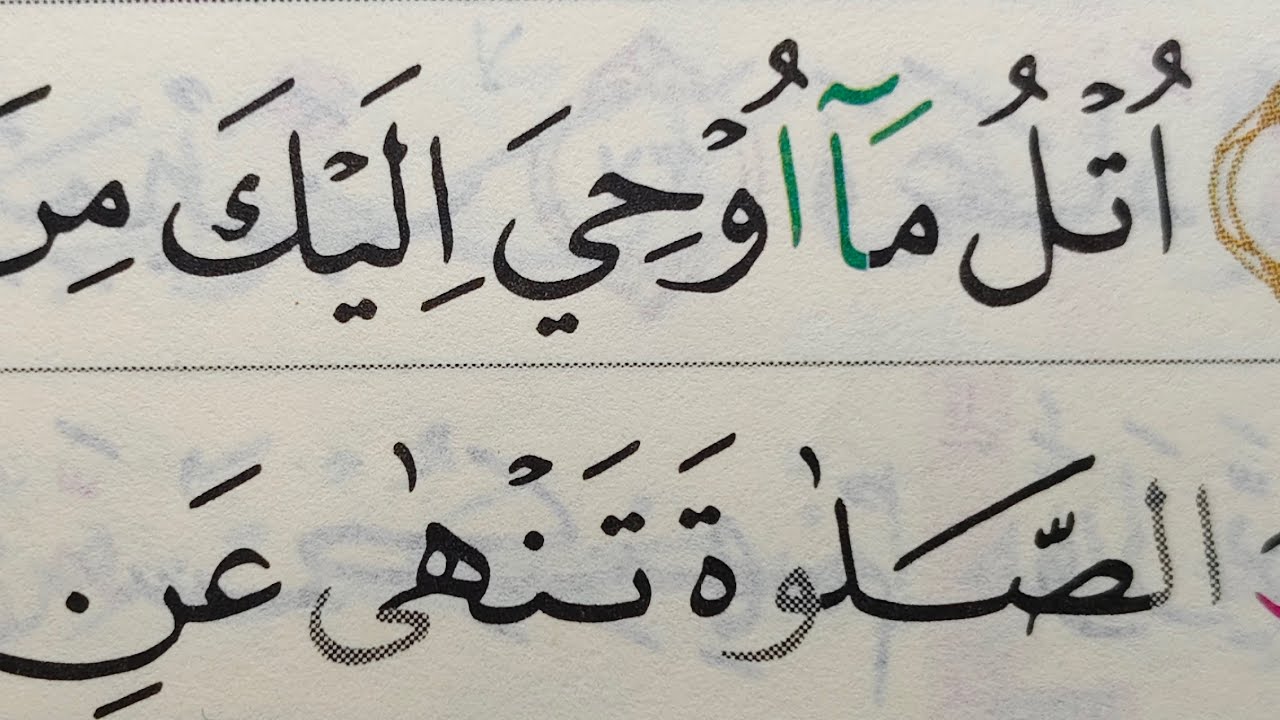 اُتْلُ مَآ اُوْحِيَ اِلَيْكَ مِنَ
الصَّلٰوةَ تَنْهٰى عَنِ